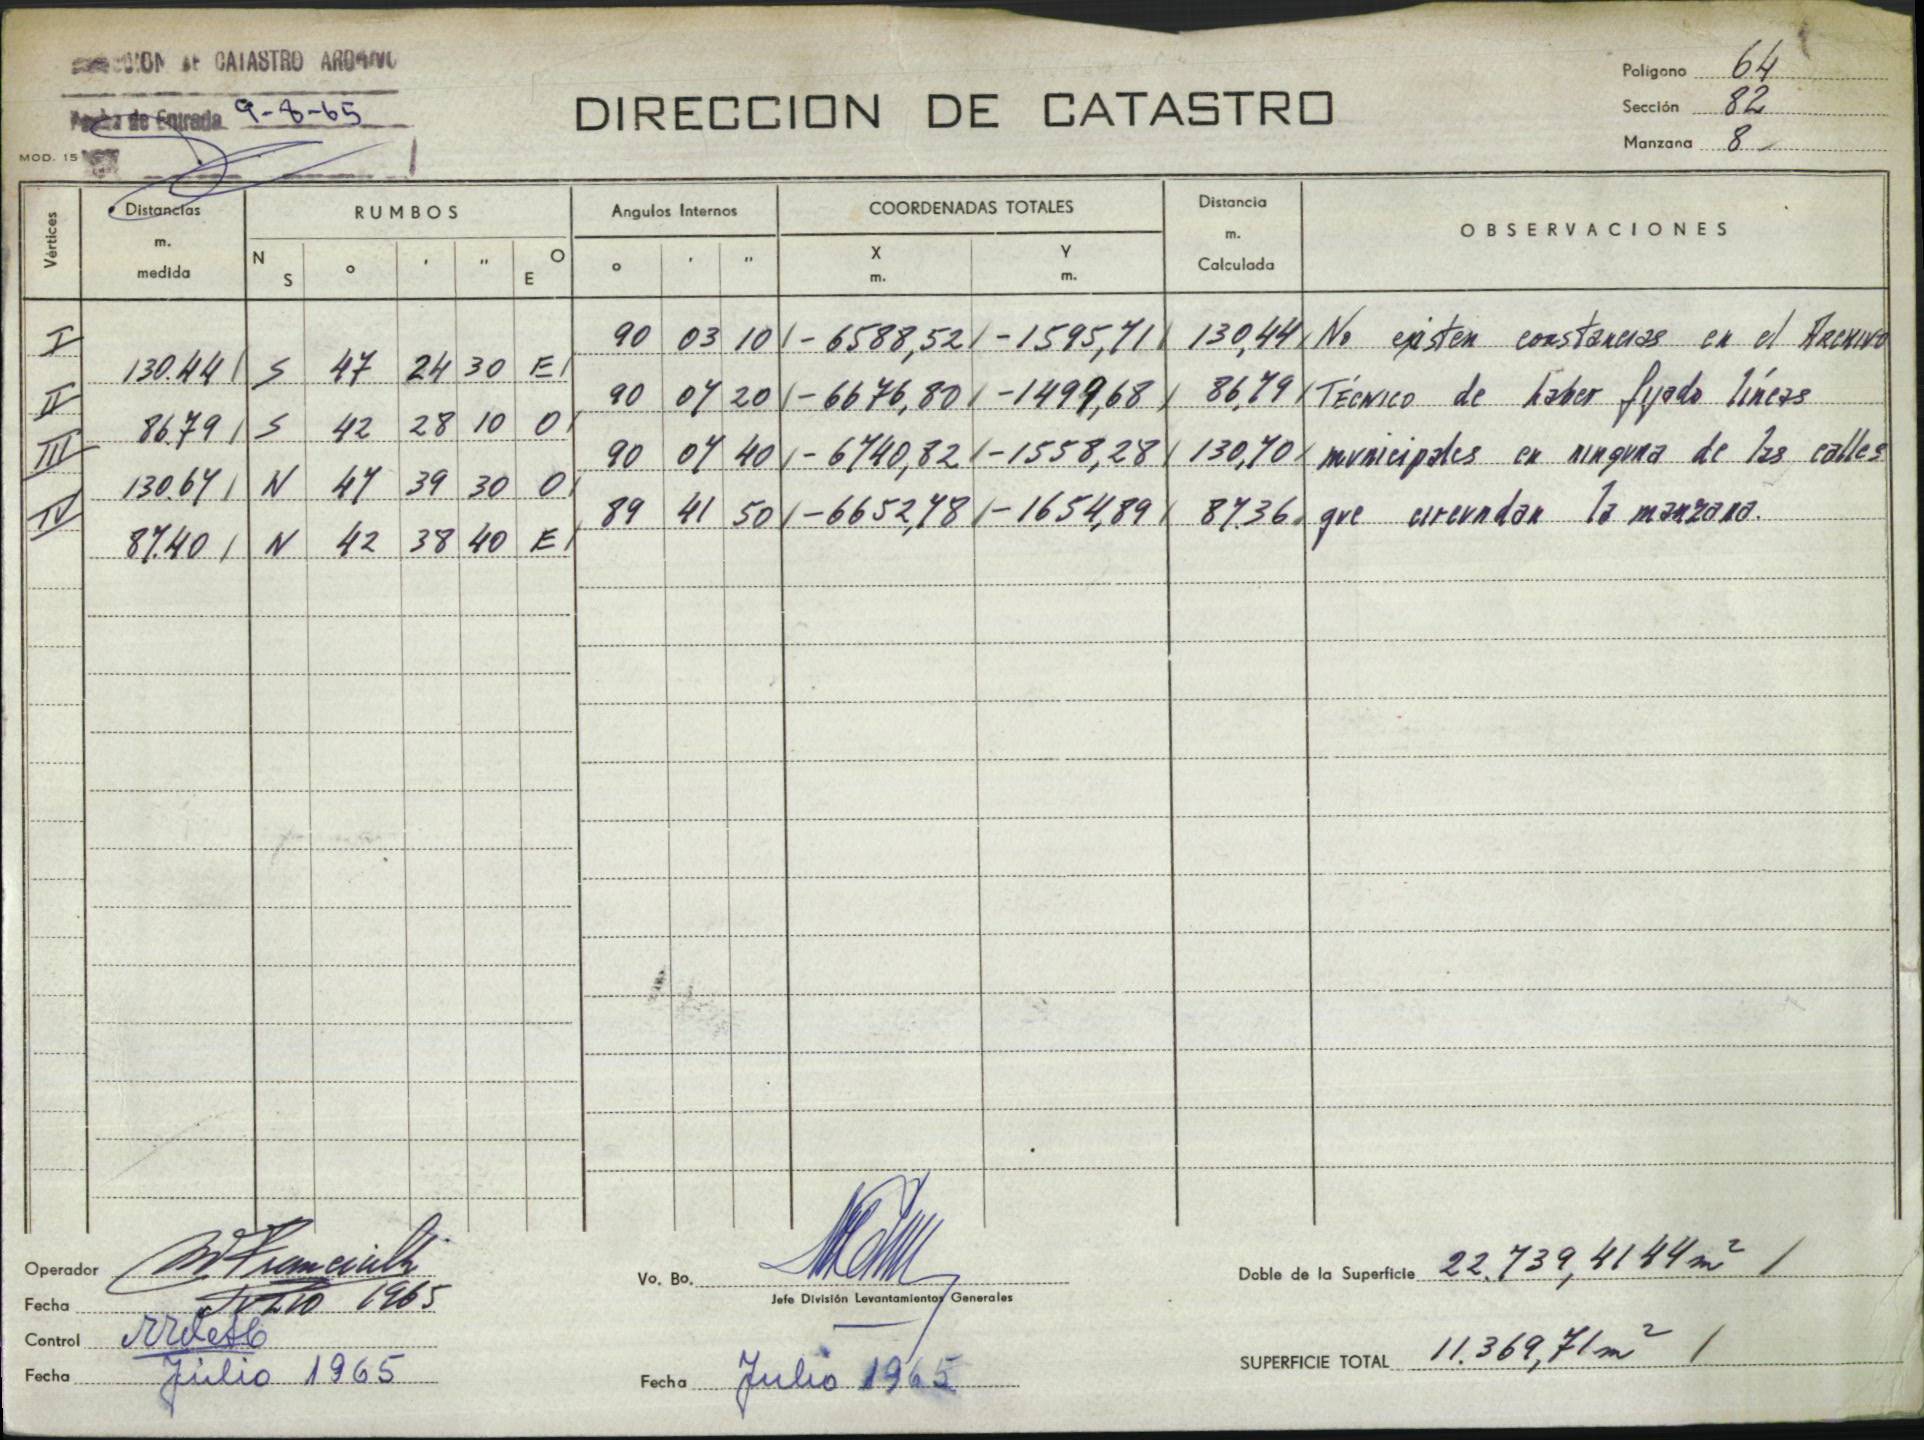 DIRECCION DE CATASTRO ARCHIVO
Fecha de Entrada 9-8-65
MOD. 15
DIRECCION DE CATASTRO
Polígono 64
Sección 82
Manzana 8
Vértices
Distancias m. medida
RUMBOS
N S ° ' " E O
Angulos Internos
° ' "
COORDENADAS TOTALES
X m. Y m.
Distancia m. Calculada
OBSERVACIONES
I 90 03 10 -6588,52 -1595,71 130,44 No existen constancias en el Archivo
130.44 S 47 24 30 E
II 90 07 20 -6676,80 -1499,68 86,79 Técnico de haber fijado líneas
86.79 S 42 28 10 O
III 90 07 40 -6740,82 -1558,28 130,70 municipales en ninguna de las calles
130.67 N 47 39 30 O
IV 89 41 50 -6652,78 -1654,89 87.36 que circundan la manzana.
87.40 N 42 38 40 E
Operador
Fecha Julio 1965
Control
Fecha Julio 1965
Vo. Bo.
Jefe División Levantamientos Generales
Fecha Julio 1965
Doble de la Superficie 22.739,4144 m²
SUPERFICIE TOTAL 11.369,71 m²